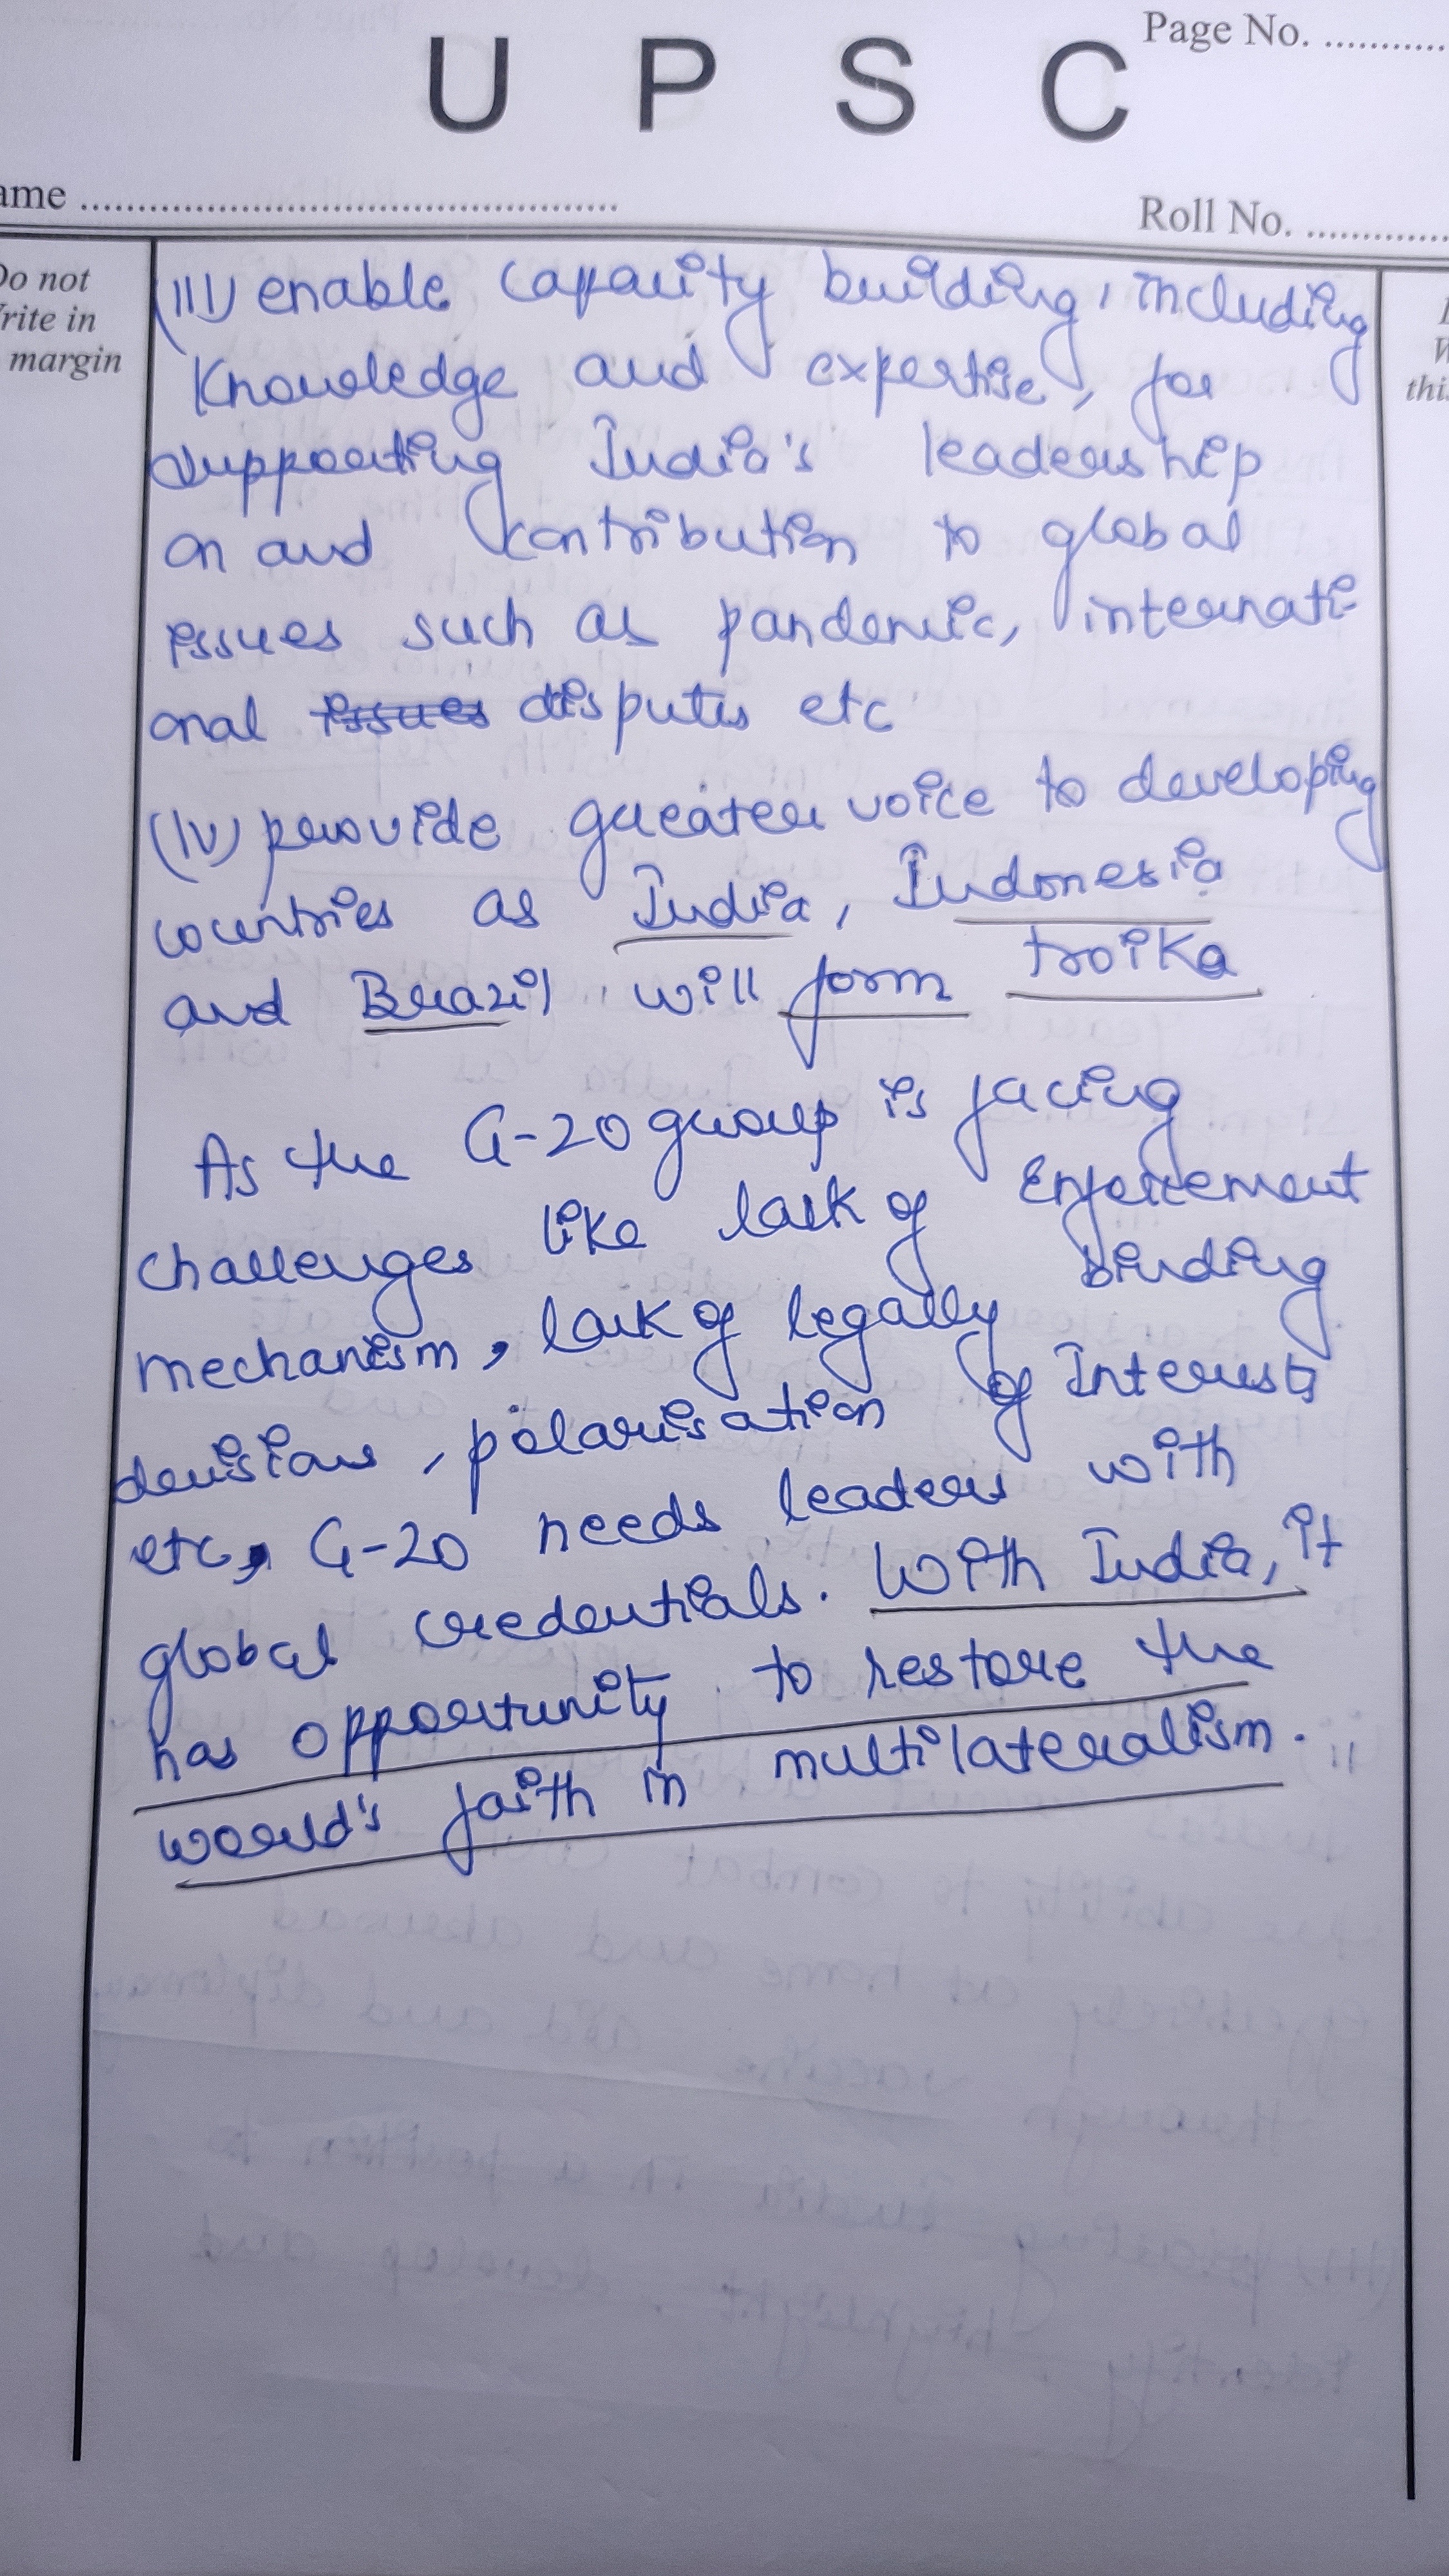 Page No. ............
U P S C
ame ......................................................
Roll No. ..............
Do not
rite in
margin
(III) enable capacity building, including
Knowledge and expertise, for
supporting India's leadership
on and contribution to global
issues such as pandemic, internati-
onal issues disputes etc
(IV) provide greater voice to developing
countries as India, Indonesia
and Brazil will form troika
As the G-20 group is facing
challenges like lack of Enforcement
mechanism, lack of legally binding
decisions, polarisation of Interests
etc, G-20 needs leaders with
global credentials. With India, it
has opportunity to restore the
world's faith in multilateralism.